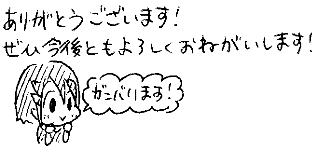 ありがとうございます!
ぜひ今後ともよろしくおねがいします!
ガンバります!